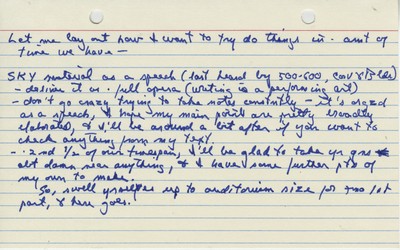 Let me lay out how I want to try do things in. amt of
time we have —
SKY material as a speech (last heard by 500-600,
- desire it as. full opera (writing is a performing art)
- don't go crazy trying to take notes - it's orgzd
as a speech, & I hope my main points are pretty broadly
elaborated, & I'll be around a bit after if you want to
check anything from my text
- 2nd 1/2 of our timespan, I'll be glad to take yr qns
abt damn near anything, & I have some further pts of
my own to make.
So, swell yourselves up to auditorium size for 1st
part, & here goes.